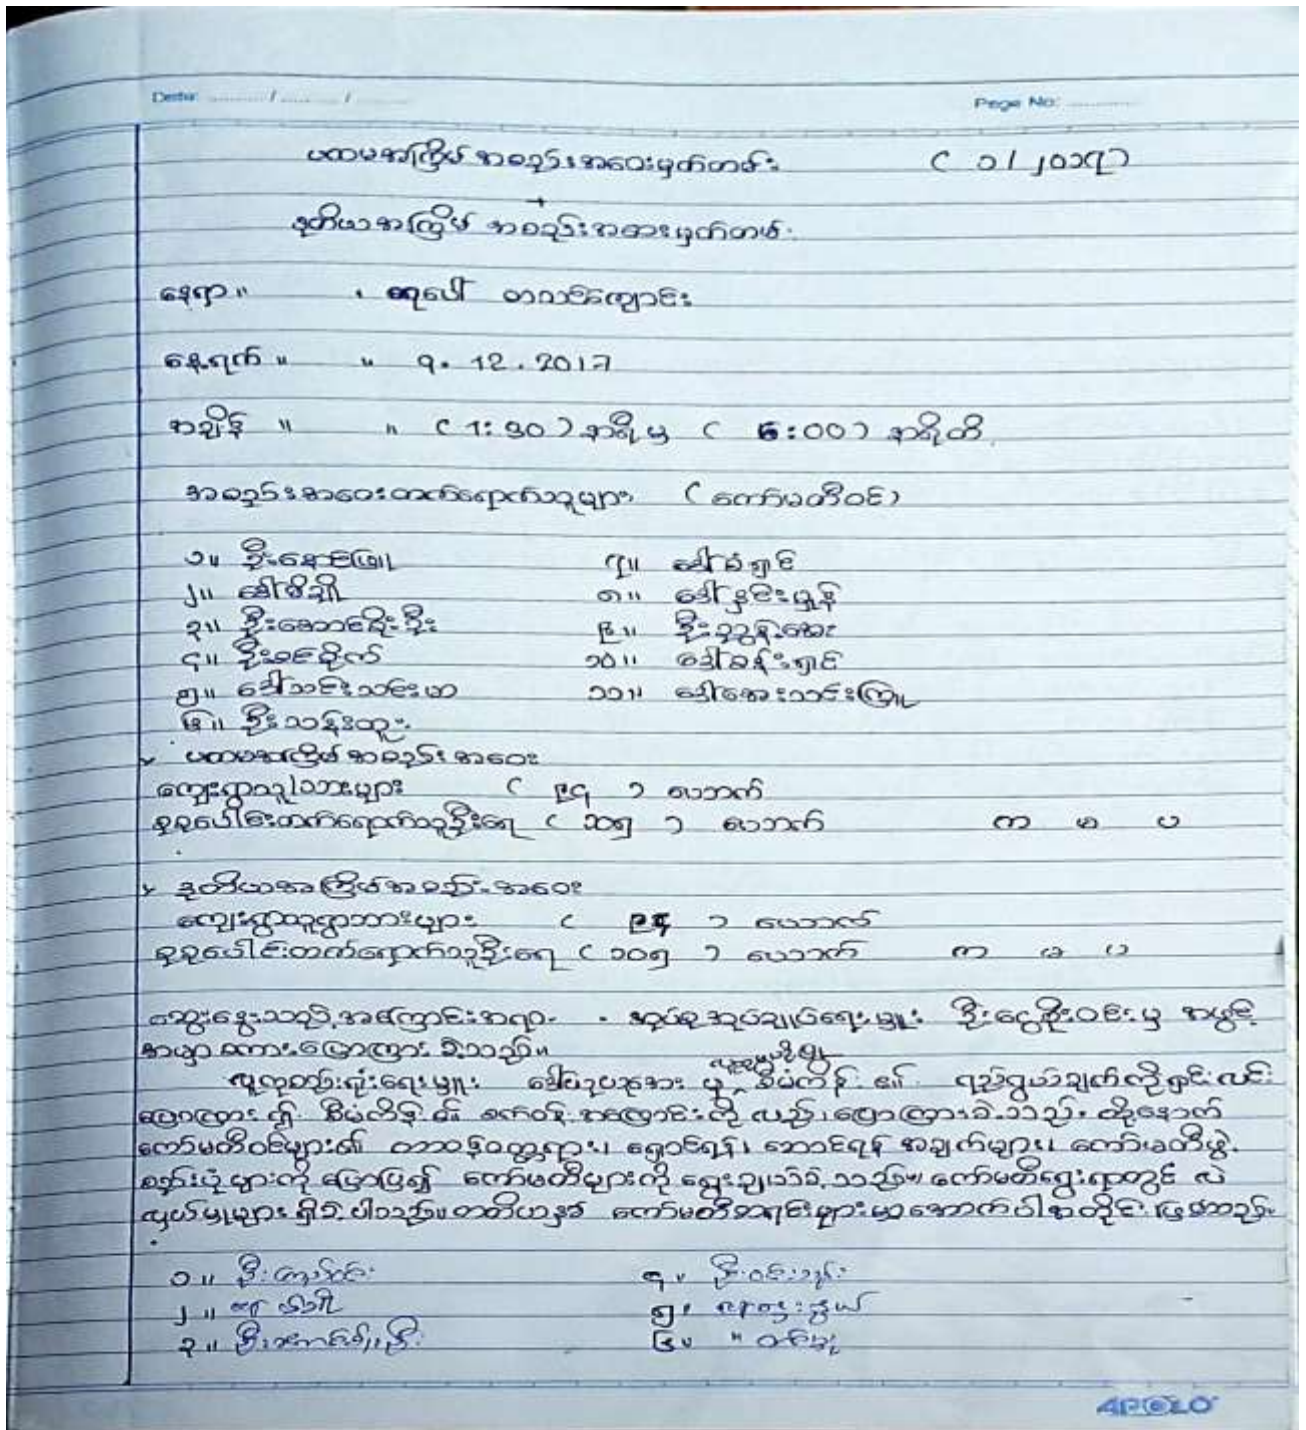 Date: ........ / ...... / ........ Page No: ............
ပထမအကြိမ် အစည်းအဝေးမှတ်တမ်း (၁/၂၀၁၇)
ဒုတိယအကြိမ် အစည်းအဝေးမှတ်တမ်း
နေရာ။ ရေပေါ် စာသင်ကျောင်း
နေ့ရက် ။ ။ 9.12.2017
အချိန် ။ ။ (1:30) နာရီမှ (5:00) နာရီထိ
အစည်းအဝေးတက်ရောက်သူများ (ကော်မတီဝင်)
၁။ ၇။ ဒေါ်
၂။ ဒေါ် ၈။ ဒေါ်နှင်းမွန်
၃။ ဦးအောင်စိုးဦး ၉။ ဦး
၄။ ဦး ၁၀။ ဒေါ်ခန်းရှင်
၅။ ဒေါ်သင်းသင်းယာ ၁၁။ ဒေါ်အေးသင်းကြူ
၆။ ဦးသန်းထူး
ပထမအကြိမ် အစည်းအဝေး
ကျေးရွာသူ/သားများ (၉၄) ယောက်
စုစုပေါင်းတက်ရောက်သူဦးရေ (၁၀၅) ယောက် က မ ပ
ဒုတိယအကြိမ်အစည်းအဝေး
ကျေးရွာသူရွာသားများ (၉၄) ယောက်
စုစုပေါင်းတက်ရောက်သူဦးရေ (၁၀၅) ယောက် က မ ပ
ဆွေးနွေးသည့်အကြောင်းအရာ - အုပ်စုအုပ်ချုပ်ရေးမှူး ဦးငွေစိုးဝင်းမှ အဖွင့်
အမှာ စကားပြောကြား ခဲ့သည်။
လူထုစည်းရုံးရေးမှူး ဒေါ် မှ စီမံကိန်း ၏ ရည်ရွယ်ချက်ကိုရှင်းလင်း
ပြောကြား၍ စီမံကိန်း စက်ဝန်း အကြောင်းကို လည်း ပြောကြားခဲ့သည်။ ထို့နောက်
ကော်မတီဝင်များ၏ တာဝန်ဝတ္တရား၊ ရှောင်ရန်၊ ဆောင်ရန် အချက်များ၊ ကော်မတီဖွဲ့
စည်းပုံများကို ပြောပြ၍ ကော်မတီများကို ရွေးချယ်ခဲ့သည်။ ကော်မတီရွေးရာတွင် လဲ
လှယ်မှုများ ရှိခဲ့ပါသည်။ တတိယနှစ် ကော်မတီစာရင်းများမှာ အောက်ပါအတိုင်း ဖြစ်သည်။
၁။ ဦး ၄။ ဦးဝင်း
၂။ ဒေါ် ၅။
၃။ ဦးအောင်စိုးဦး ၆။ "
APOLO